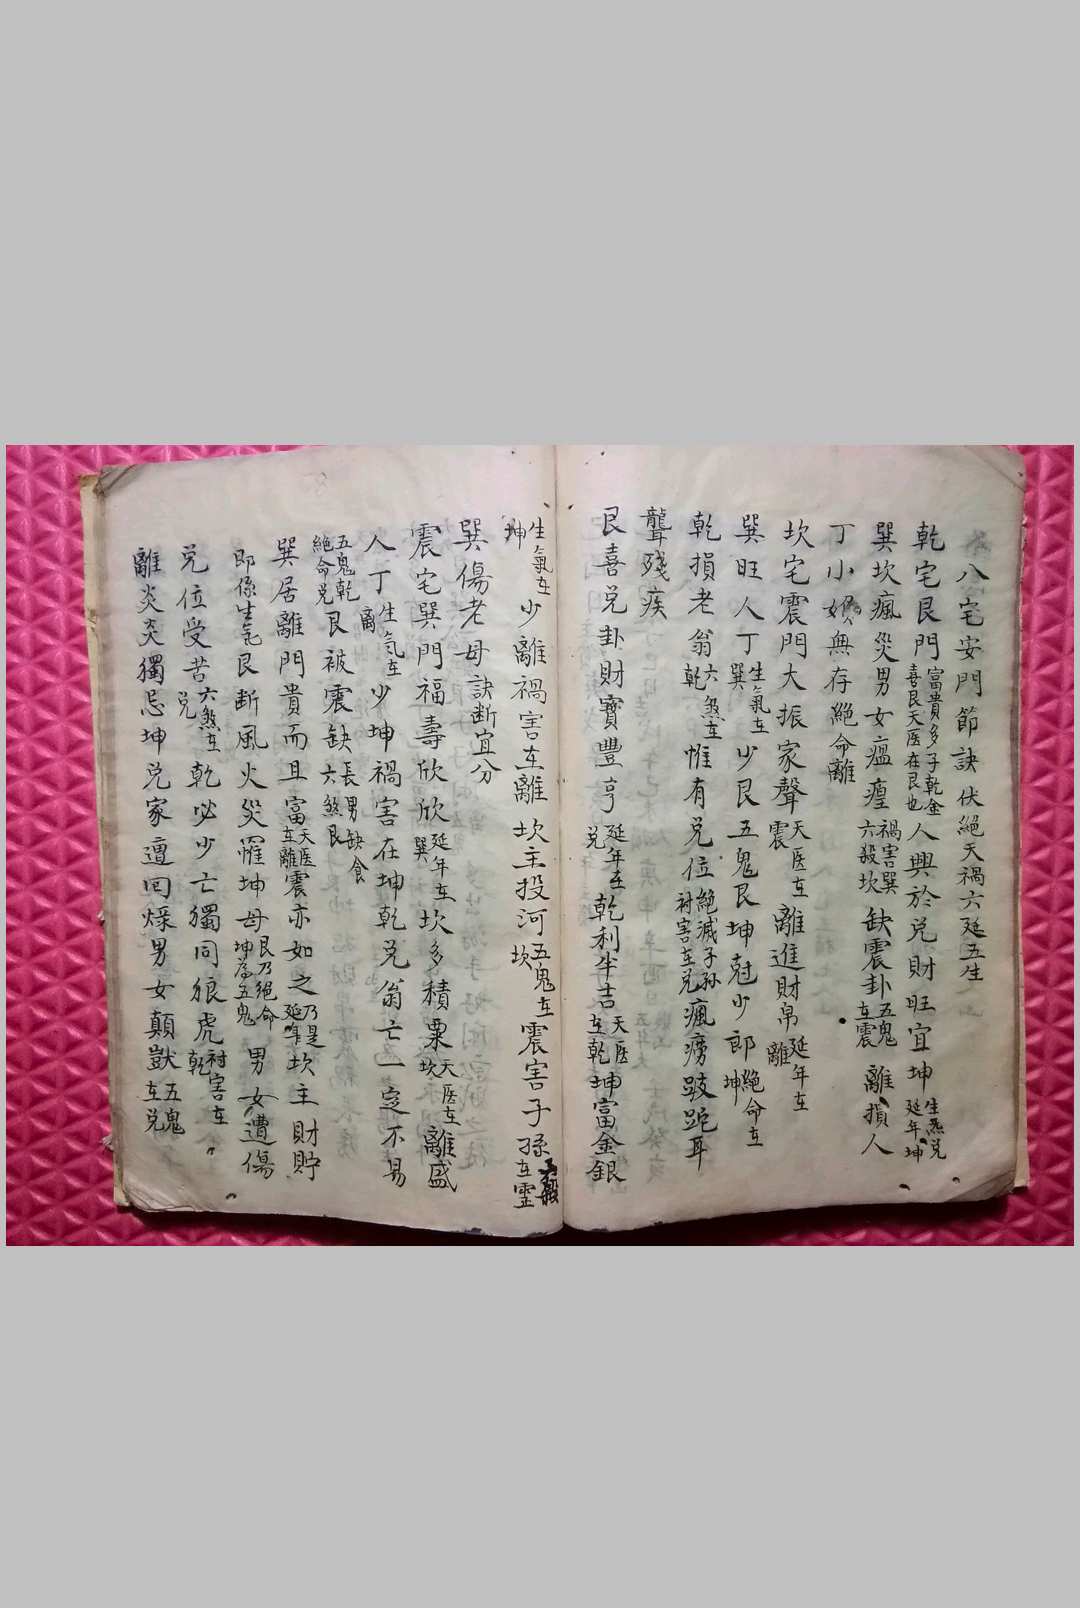 八宅安門節訣伏絕天禍六延五生
乾宅艮門富貴多子乾金喜艮天医在艮也人興於兑財旺宜坤生炁兑延年坤
巽坎瘋災男女瘟㾮禍害巽六殺坎缺震卦五鬼在震離損人
丁小娘無存絕命離
坎宅震門大振家聲天医在震離進財帛延年在離
巽旺人丁生氣在巽少艮五鬼艮坤尅少郎絕命在坤
乾損老翁六煞在乾惟有兑位絕滅子孫禍害在兑瘋痨跛跎耳
聾殘疾
艮喜兑卦財寶豐亨延年在兑乾利半吉天医在乾坤富金銀
生氣在坤少離禍害在離坎主投河五鬼在坎震害子孫六煞在震
巽傷老母訣断宜分
震宅巽門福壽欣欣延年在巽坎多積粟天医在坎離盛
人丁生氣在離少坤禍害在坤乾兑翁亡一定不易
五鬼乾絕命兑艮被震缺長男缺食六煞艮
巽居離門貴而且富天医在離震亦如之乃是延年坎主財貯
即係生氣艮断風火災罹坤母艮乃絕命坤為五鬼男女遭傷
兑位受苦六煞在兑乾必少亡獨同狼虎禍害在乾
離炎炎獨忌坤兑家遭回燥男女顛獃五鬼在兑